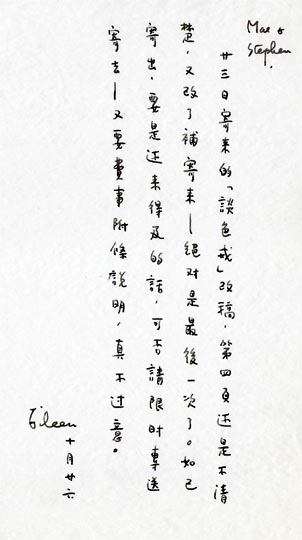 Mae &
Stephen,
廿三日寄来的「談色戒」改稿，第四頁还是不清
楚，又改了補寄来—絕对是最後一次了。如已
寄出，要是还来得及的話，可否請限时專送
寄去—又要費事附條說明，真不过意。
Eileen
十月廿六